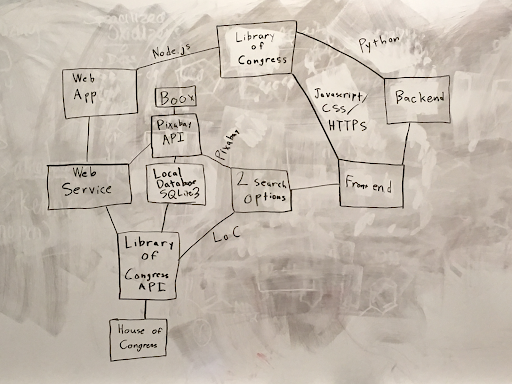 Library
of
Congress
Node.js
Python
Web
App
Boox
Javascript/
CSS/
HTTPS
Backend
Pixabay
API
Pixabay
Web
Service
Local
Database
SQLite3
2 search
options
Frontend
Library
Of
Congress
API
LoC
House of
Congress